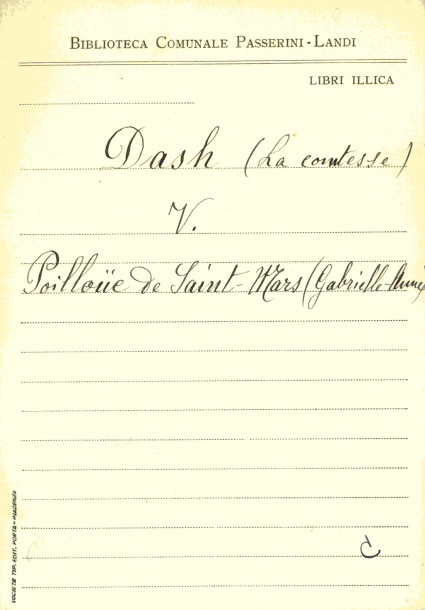 BIBLIOTECA COMUNALE PASSERINI-LANDI
LIBRI ILLICA
Dash (La comtesse)
V.
Poilloüe de Saint-Mars (Gabrielle-Anne)
SOCIETÀ TIP. EDIT. PORTA - PIACENZA
C